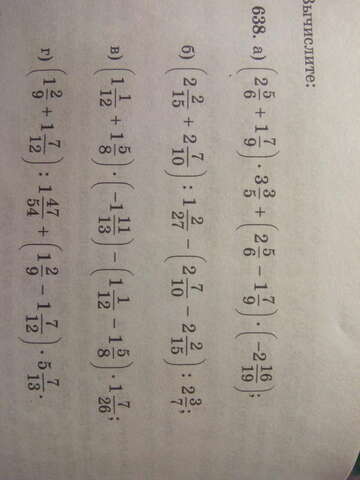 Вычислите:
638. а) (2 5/6 + 1 7/9) · 3 3/5 + (2 5/6 − 1 7/9) · (−2 16/19);
б) (2 2/15 + 2 7/10) : 1 2/27 − (2 7/10 − 2 2/15) : 2 3/7;
в) (1 1/12 + 1 5/8) · (−1 11/13) − (1 1/12 − 1 5/8) · 1 7/26;
г) (1 2/9 + 1 7/12) : 1 47/54 + (1 2/9 − 1 7/12) · 5 7/13.